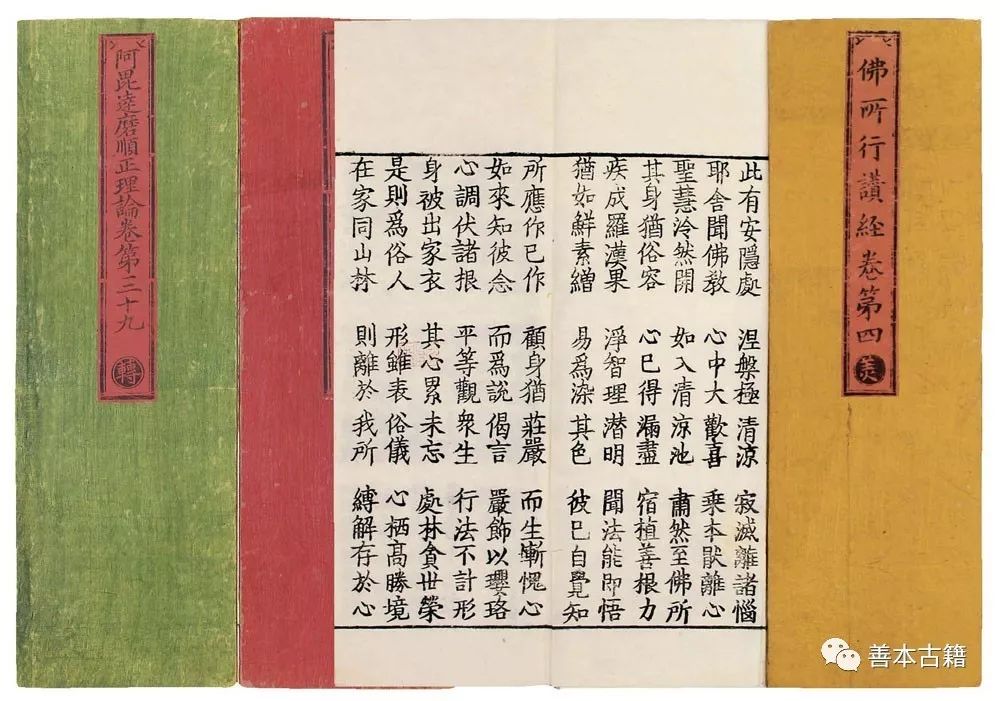 佛所行讃経卷第四
此有安隱處 涅槃極清涼 寂滅離諸惱
耶舍聞佛教 心中大歡喜 乘本猒離心
聖慧泠然開 如入清涼池 肅然至佛所
其身猶俗容 心已得漏盡 宿植善根力
疾成羅漢果 淨智理潜明 聞法能即悟
猶如鮮素繒 易爲染其色 彼已自覺知
所應作已作 顧身猶莊嚴 而生慚愧心
如來知彼念 而爲說偈言 嚴飾以瓔珞
心調伏諸根 平等觀衆生 行法不計形
身被出家衣 其心累未忘 處林貪世榮
是則爲俗人 形雖表俗儀 心栖高勝境
在家同山林 則離於我所 縛解存於心
阿毘達磨順正理論卷第三十九
轉
善本古籍